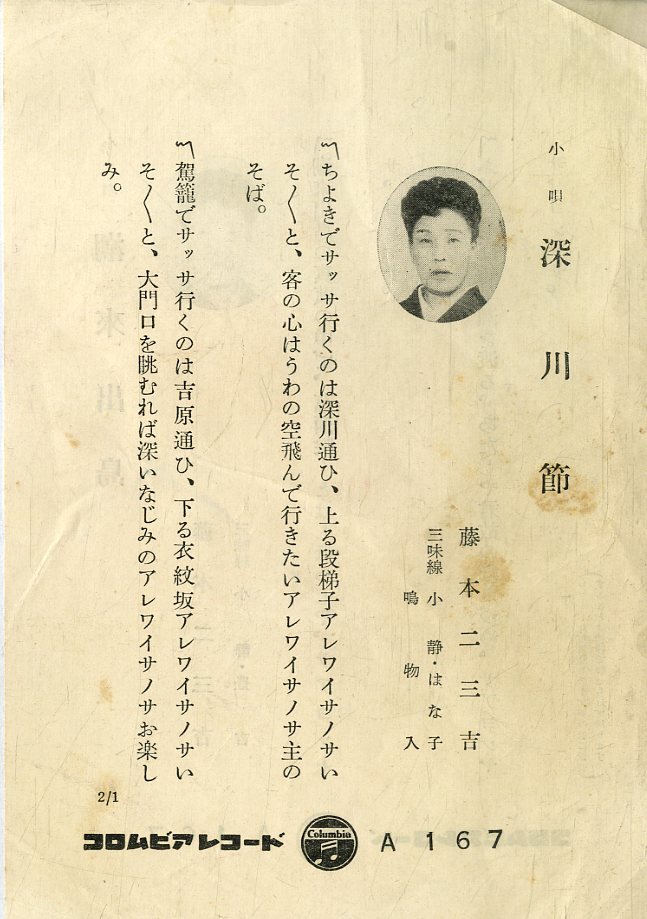 小唄 深川節
藤本二三吉
三味線 小静・はな子
鳴物入
〽ちよきでサッサ行くのは深川通ひ、上る段梯子アレワイサノサい
そ〱と、客の心はうわの空飛んで行きたいアレワイサノサ主の
そば。
〽駕籠でサッサ行くのは吉原通ひ、下る衣紋坂アレワイサノサい
そ〱と、大門口を眺むれば深いなじみのアレワイサノサお楽し
み。
2/1
コロムビアレコード Columbia A 167